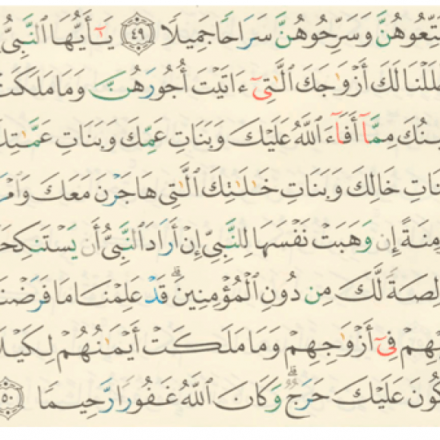 تِّعُوهُنَّ وَسَرِّحُوهُنَّ سَرَاحًا جَمِيلًا ﴿٤٩﴾ يَـٰٓأَيُّهَا ٱلنَّبِىُّ
لَلْنَا لَكَ أَزْوَٰجَكَ ٱلَّـٰتِىٓ ءَاتَيْتَ أُجُورَهُنَّ وَمَا مَلَكَتْ
ينُكَ مِمَّآ أَفَآءَ ٱللَّهُ عَلَيْكَ وَبَنَاتِ عَمِّكَ وَبَنَاتِ عَمَّـٰتِكَ
نَاتِ خَالِكَ وَبَنَاتِ خَـٰلَـٰتِكَ ٱلَّـٰتِى هَاجَرْنَ مَعَكَ وَٱمْرَ
مِنَةً إِن وَهَبَتْ نَفْسَهَا لِلنَّبِىِّ إِنْ أَرَادَ ٱلنَّبِىُّ أَن يَسْتَنكِحَ
لِصَةً لَّكَ مِن دُونِ ٱلْمُؤْمِنِينَ ۗ قَدْ عَلِمْنَا مَا فَرَضْنَا
يْهِمْ فِىٓ أَزْوَٰجِهِمْ وَمَا مَلَكَتْ أَيْمَـٰنُهُمْ لِكَيْلَا
كُونَ عَلَيْكَ حَرَجٌ ۗ وَكَانَ ٱللَّهُ غَفُورًا رَّحِيمًا ﴿٥٠﴾